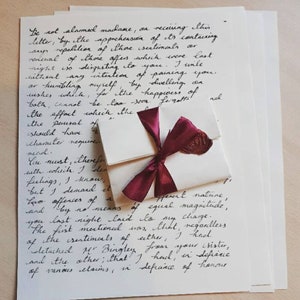 Be not alarmed madame, on receiving this
letter, by the apprehension of its containing
any repetition of those sentiments or
renewal of those offers which were last
night so disgusting to you. I write
without any intention of paining you
or humbling myself by dwelling on
wishes which, for the happiness of
both, cannot be too soon forgotten and
the effort which the
the perusal of
should have
character require
need.
You must, therefore
with which I de
feelings, I know
but I demand it
Two offences of different nature,
and by no means of equal magnitude,
you last night laid to my charge.
The first mentioned was, that, regardless
of the sentiments of either, I had
detached Mr Bingley from your sister,
and the other, that I had, in defiance
of various claims, in defiance of honour